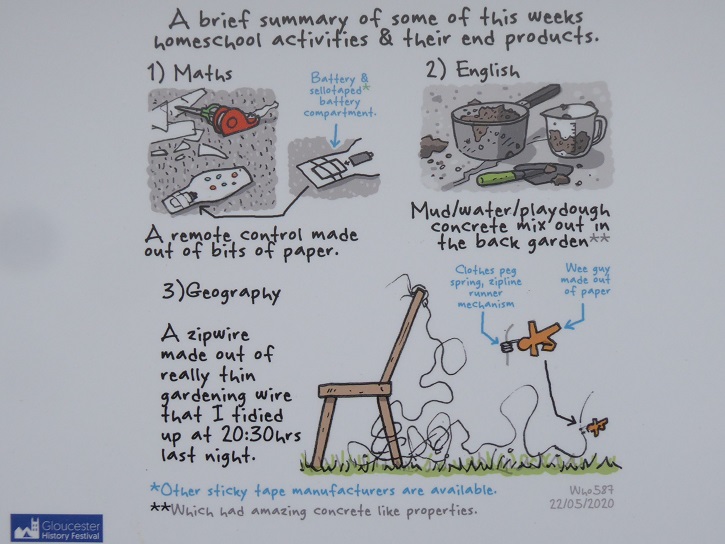 A brief summary of some of this weeks
homeschool activities & their end products.
1) Maths
Battery &
sellotaped*
battery
compartment.
A remote control made
out of bits of paper.
2) English
Mud/water/playdough
concrete mix out in
the back garden**
3)Geography
A zipwire
made out of
really thin
gardening wire
that I fidied
up at 20:30hrs
last night.
Clothes peg
spring, zipline
runner
mechanism
Wee guy
made out
of paper
*Other sticky tape manufacturers are available.
**Which had amazing concrete like properties.
Who587
22/05/2020
Gloucester
History Festival